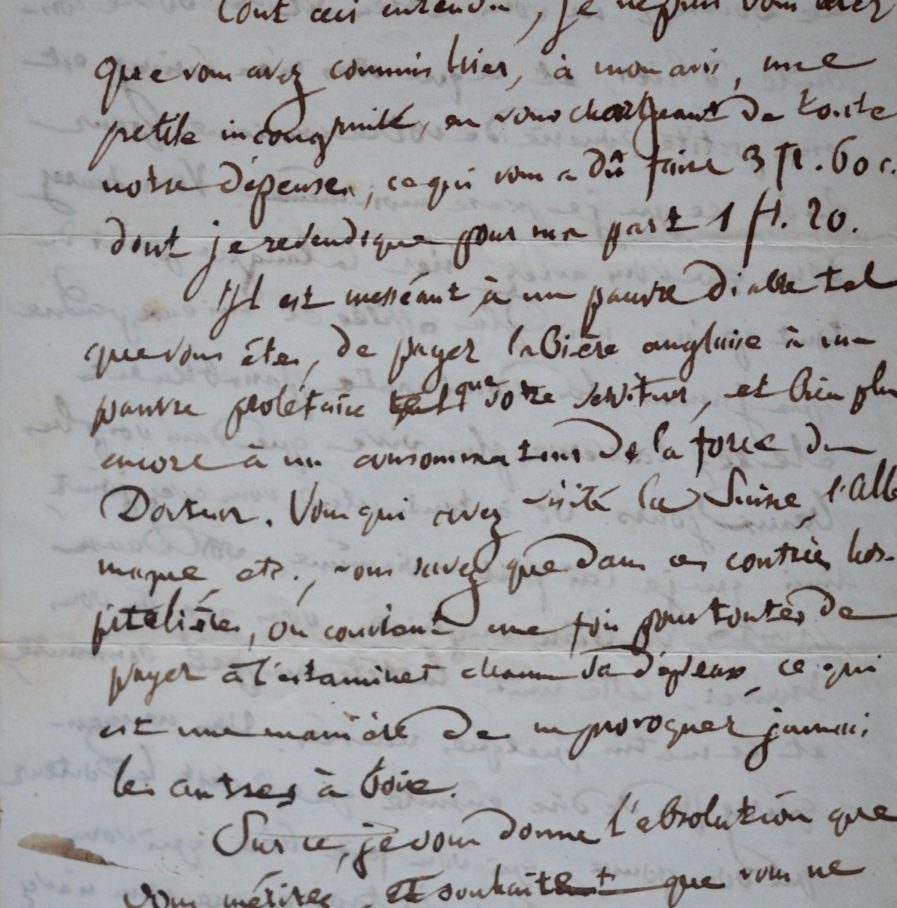 Tout ceci entendu, je
que vous avez commis hier, à mon avis, une
petite incongruité, en vous chargeant de toute
notre dépense, ce qui vous a dû faire 3 fr. 60 c.
dont je revendique pour ma part 1 fr. 20.
Il est messéant à un pauvre diable tel
que vous êtes, de payer la Bière anglaise à un
pauvre prolétaire que votre serviteur, et bien plus
encore à un consommateur de la force du
Docteur. Vous qui avez visité la Suisse l'Alle
magne, etc., vous savez que dans ces contrées hos-
pitalières, on convient une fois pour toutes de
payer à l'estaminet chacun sa dépense, ce qui
est une manière de ne provoquer jamais
les autres à boire.
Sur ce, je vous donne l'absolution que
vous méritez, et souhaite que vous ne